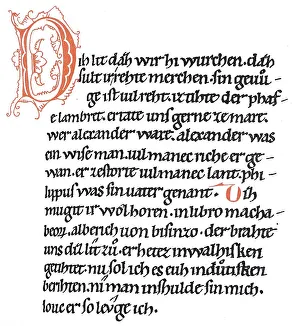 Diz lit dáz wir hi wurchen. dáz
sult ir rehte merchen. sin geuů-
ge ist uil reht. iz tihte der phaf-
fe lambret. er tate uns gerne ze mare.
wer alexander ware. alexander was
ein wise man. uil manec riche er ge-
wan. er zestorte uil manec lant. phi-
lippus was sin uater genant. Diz
mugit ir wol horen. in libro macha-
beorum. alberich uon bisinzo. der brahte
uns diz lit zů. er hetez in walhisken
getihtet. nu sol ich es euh in důtisken
berihten. niman in shulde sin mich.
louc er so leuge ich.